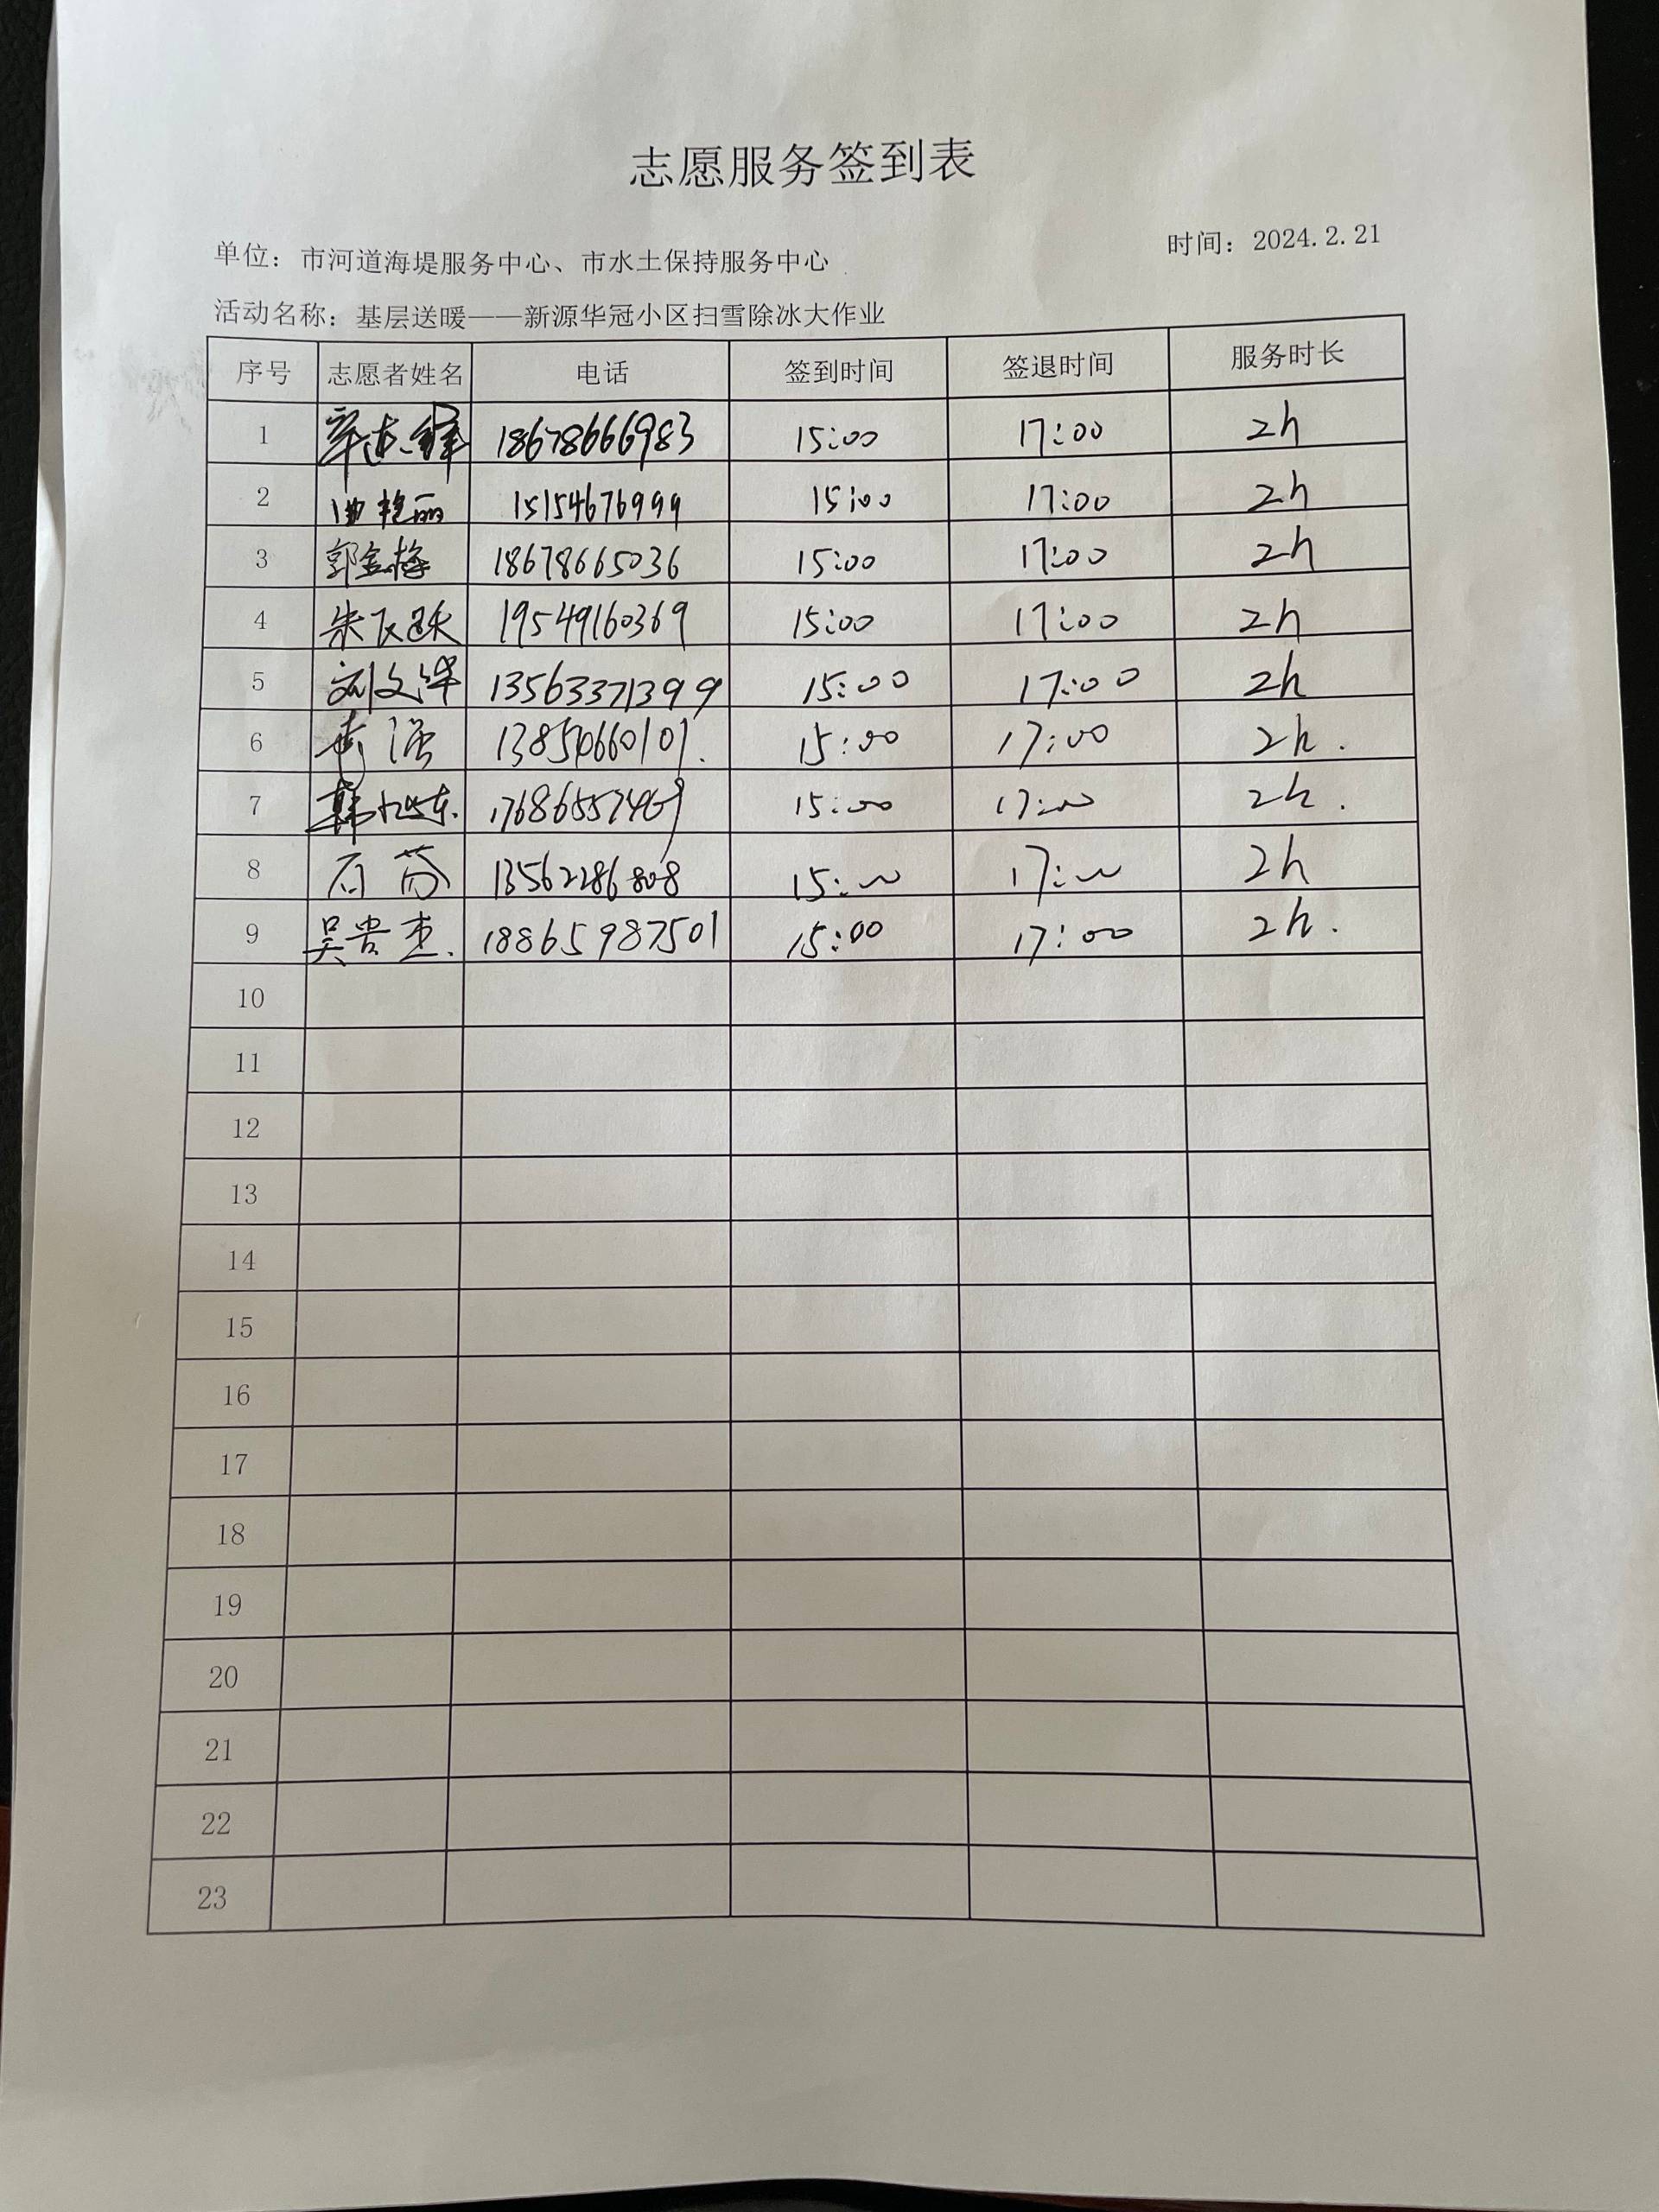 志愿服务签到表
单位：市河道海堤服务中心、市水土保持服务中心 时间：2024.2.21
活动名称：基层送暖——新源华冠小区扫雪除冰大作业
序号 志愿者姓名 电话 签到时间 签退时间 服务时长
1 辛志锋 18678666983 15:00 17:00 2h
2 曲艳丽 15154676999 15:00 17:00 2h
3 郭金梅 18678665036 15:00 17:00 2h
4 朱飞跃 19549160369 15:00 17:00 2h
5 刘文华 13563371399 15:00 17:00 2h
6 15:00 17:00 2h.
7 15:00 17:00 2h.
8 13562286808 15:00 17:00 2h
9 吴贵杰. 18865987501 15:00 17:00 2h.
10
11
12
13
14
15
16
17
18
19
20
21
22
23